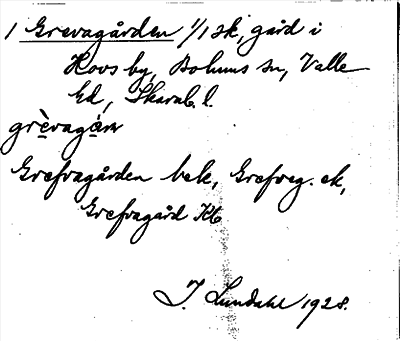 1 Grevagården 1/1 sk, gård i
Hovs by, Bolums sn, Valle
hd, Skarab. l.
grèvagárn
Grefvagården bek, Grefveg. ek,
Grefvagård Kb
I. Lundahl 1928.